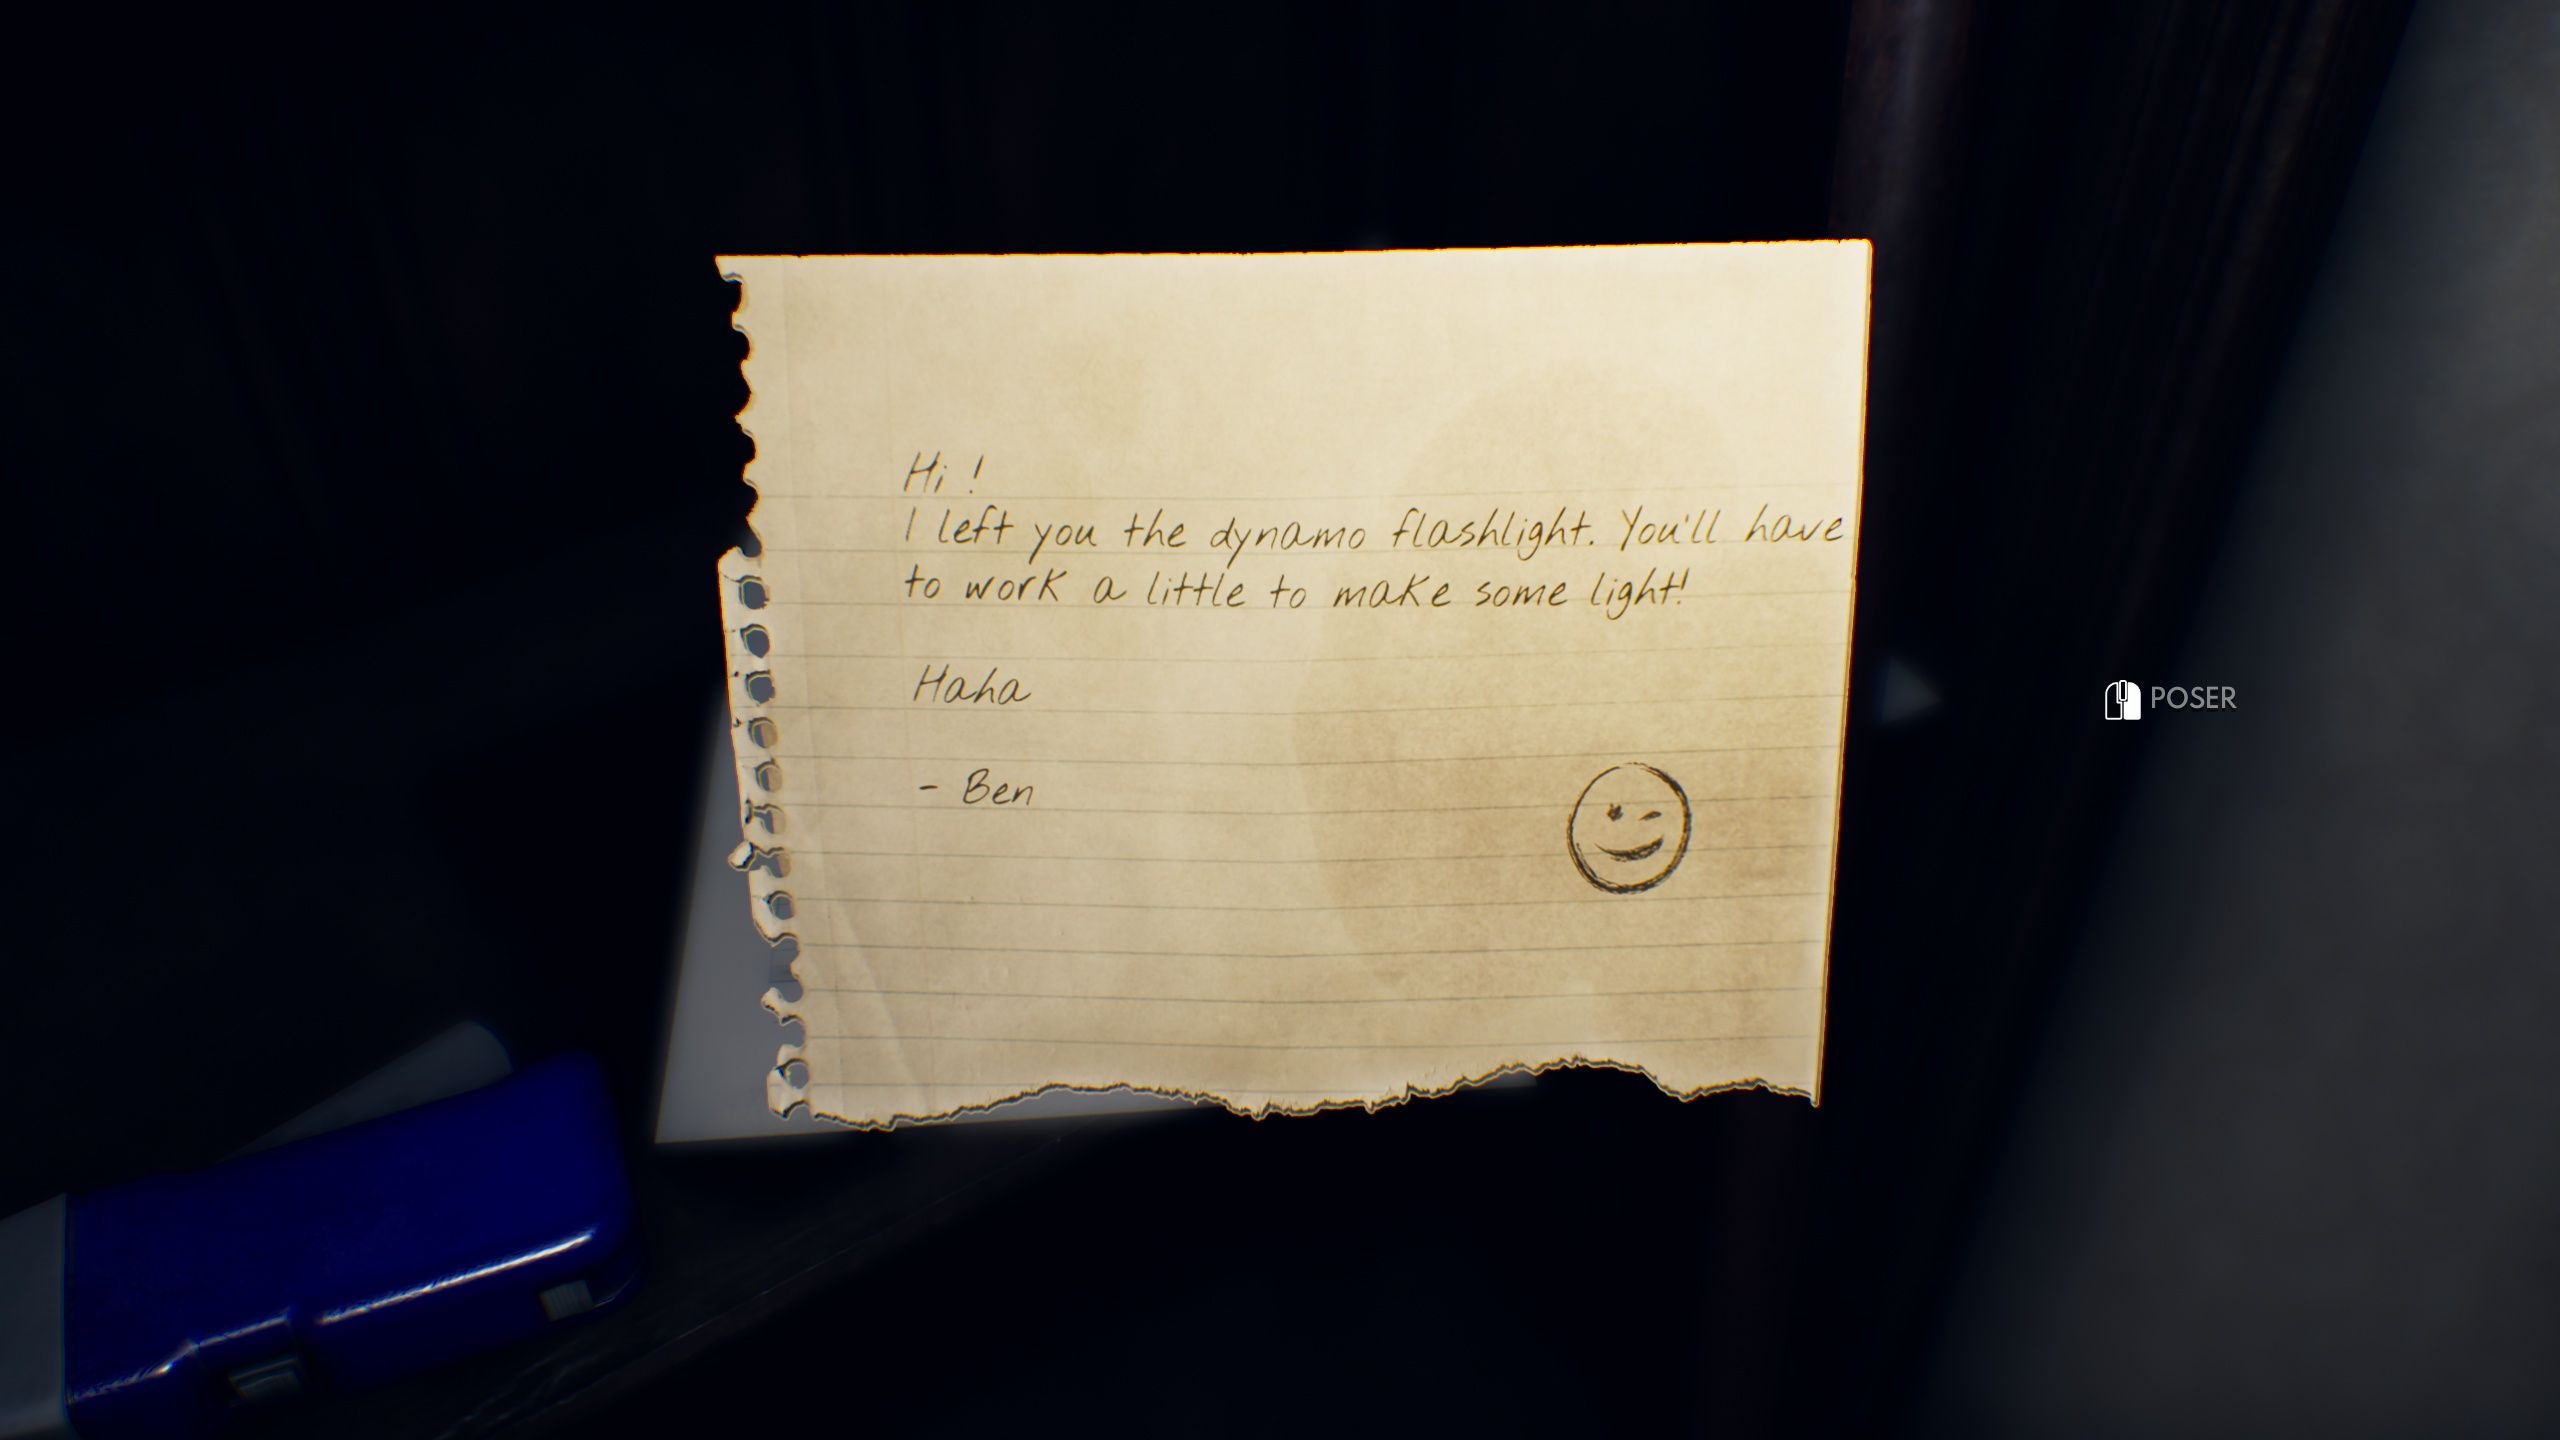 Hi !
I left you the dynamo flashlight. You'll have
to work a little to make some light!
Haha
- Ben
POSER